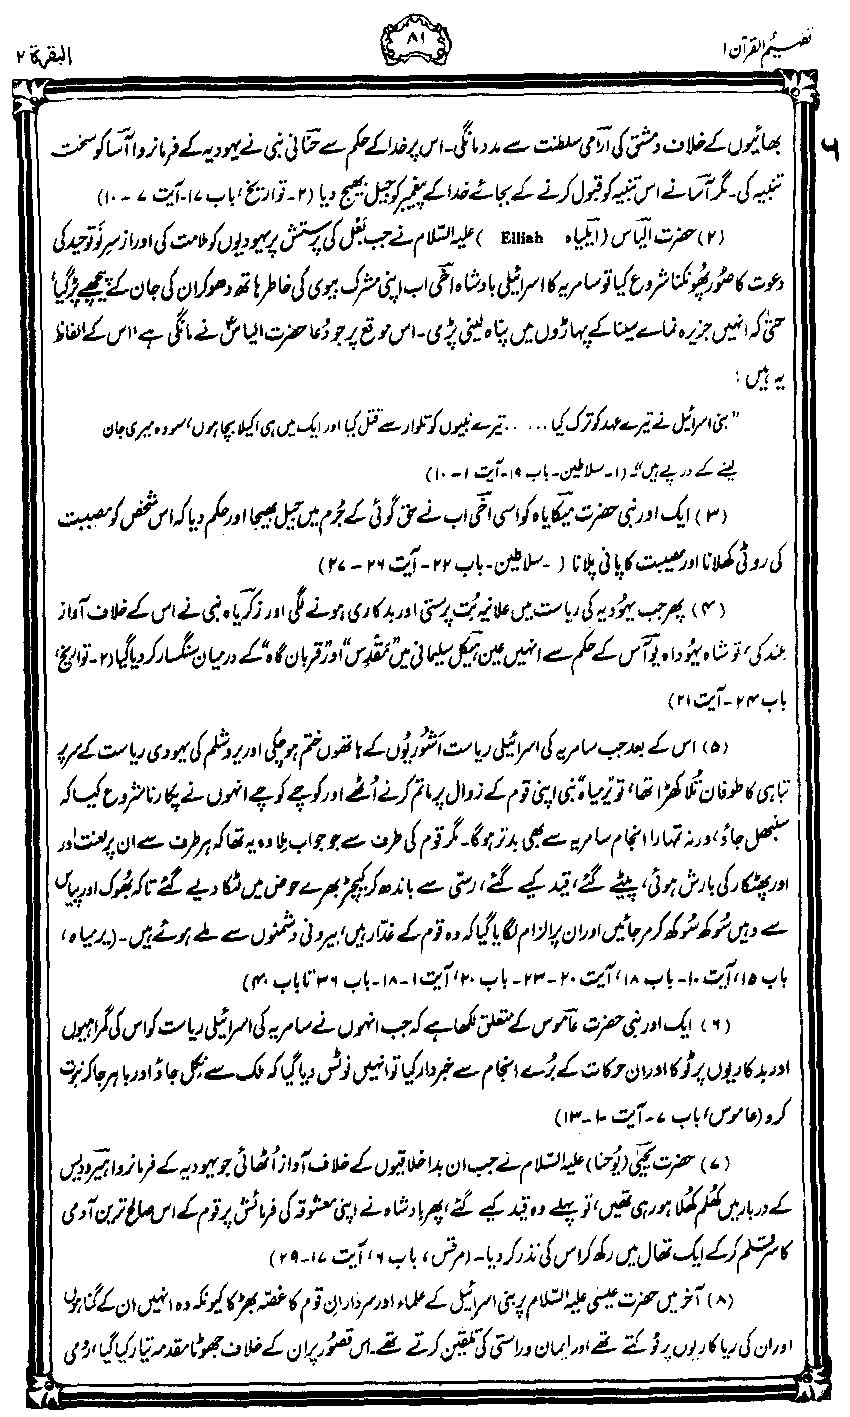 تفہیم القرآن ۱
۸۱
البقرۃ ۲
بھائیوں کے خلاف دمشق کی ارامی سلطنت سے مدد مانگی۔ اس پر خدا کے حکم سے حنانی نبی نے یہودیہ کے فرمانروا آسا کو سخت
تنبیہ کی۔ مگر آسا نے اس تنبیہ کو قبول کرنے کے بجائے خدا کے پیغمبر کو جیل بھیج دیا (۲۔ تواریخ، باب ۱۷۔ آیت ۷ – ۱۰)
(۲) حضرت الیاس (ایلیاہ Eiliah) علیہ السّلام نے جب بَعْل کی پرستش پر یہودیوں کو ملامت کی اور از سرِ نو توحید کی
دعوت کا صُور پھُونکنا شروع کیا تو سامریہ کا اسرائیلی بادشاہ اخی اب اپنی مشرک بیوی کی خاطر ہاتھ دھو کر ان کی جان کے پیچھے پڑ گیا،
حتیٰ کہ انہیں جزیرہ نمائے سینا کے پہاڑوں میں پناہ لینی پڑی۔ اس موقع پر جو دُعا حضرت الیاسؑ نے مانگی ہے، اس کے الفاظ
یہ ہیں:
"بنی اسرائیل نے تیرے عہد کو ترک کیا ......تیرے نبیوں کو تلوار سے قتل کیا اور ایک میں ہی اکیلا بچا ہوں، سو وہ میری جان
لینے کے درپے ہیں"۔ (۱۔ سلاطین۔ باب ۱۹۔ آیت ۱ – ۱۰)
(۳) ایک اور نبی حضرت میکایاہ کو اسی اخی اب نے حق گوئی کے جُرم میں جیل بھیجا اور حکم دیا کہ اس شخص کو مصیبت
کی روٹی کھلانا اور مصیبت کا پانی پلانا ( ۔سلاطین۔ باب ۲۲۔ آیت ۲۶ – ۲۷)
(۴) پھر جب یہُودیہ کی ریاست میں علانیہ بُت پرستی اور بدکاری ہونے لگی اور زکریاہ نبی نے اس کے خلاف آواز
بلند کی، تو شاہ یہُوداہ یوآس کے حکم سے انہیں عین ہیکلِ سلیمانی میں "مَقْدِس" اور "قربان گاہ" کے درمیان سنگسار کر دیا گیا (۲۔ تواریخ،
باب ۲۴۔ آیت ۲۱)
(۵) اس کے بعد جب سامریہ کی اسرائیلی ریاست اَشُوریوں کے ہاتھوں ختم ہو چکی اور یروشلم کی یہودی ریاست کے سر پر
تباہی کا طوفان تُلا کھڑا تھا، تو "یرمیاہ" نبی اپنی قوم کے زوال پر ماتم کرنے اُٹھے اور کوچے کوچے انہوں نے پکارنا شروع کیا کہ
سنبھل جاؤ، ورنہ تمہارا انجام سامریہ سے بھی بدتر ہو گا۔ مگر قوم کی طرف سے جو جواب مِلا وہ یہ تھا کہ ہر طرف سے ان پر لعنت اور
اور پھٹکار کی بارش ہوئی، پیٹے گئے، قید کیے گئے، رسّی سے باندھ کر کیچڑ بھرے حوض میں لٹکا دیے گئے تاکہ بھُوک اور پیاس
سے وہیں سُوکھ سُوکھ کر مر جائیں اور ان پر الزام لگایا گیا کہ وہ قوم کے غدّار ہیں، بیرونی دشمنوں سے ملے ہوئے ہیں۔ (یرمیاہ،
باب ۱۵، آیت ۱۰۔ باب ۱۸، آیت ۲۰-۲۳۔ باب ۲۰، آیت ۱-۱۸۔ باب ۳۶ تا باب ۴۰)
(۶) ایک اور نبی حضرت عاموس کے متعلق لکھا ہے کہ جب انہوں نے سامریہ کی اسرائیلی ریاست کو اس کی گمراہیوں
اور بدکاریوں پر ٹوکا اور ان حرکات کے بُرے انجام سے خبردار کیا تو انہیں نوٹس دیا گیا کہ ملک سے نِکل جاؤ اور باہر جا کر نبوت
کرو (عاموس، باب ۷۔ آیت ۱۰-۱۳)
(۷) حضرت یحییٰ (یُوحنا) علیہ السّلام نے جب ان بداخلاقیوں کے خلاف آواز اُٹھائی جو یہودیہ کے فرمانروا ہیرودیس
کے دربار میں کھُلم کھُلا ہو رہی تھیں، تو پہلے وہ قید کیے گئے، پھر بادشاہ نے اپنی معشوقہ کی فرمائش پر قوم کے اس صالح ترین آدمی
کا سر قلم کر کے ایک تھال میں رکھ کر اس کی نذر کر دیا۔ (مرقس، باب ۶، آیت ۱۷-۲۹)
(۸) آخر میں حضرت عیسیٰ علیہ السّلام پر بنی اسرائیل کے علماء اور سردارانِ قوم کا غصّہ بھڑکا کیونکہ وہ انہیں ان کے گناہوں
اور ان کی ریاکاریوں پر ٹوکتے تھے اور ایمان و راستی کی تلقین کرتے تھے۔ اس قصُور پر ان کے خلاف جھوٹا مقدمہ تیار کیا گیا، رُومی